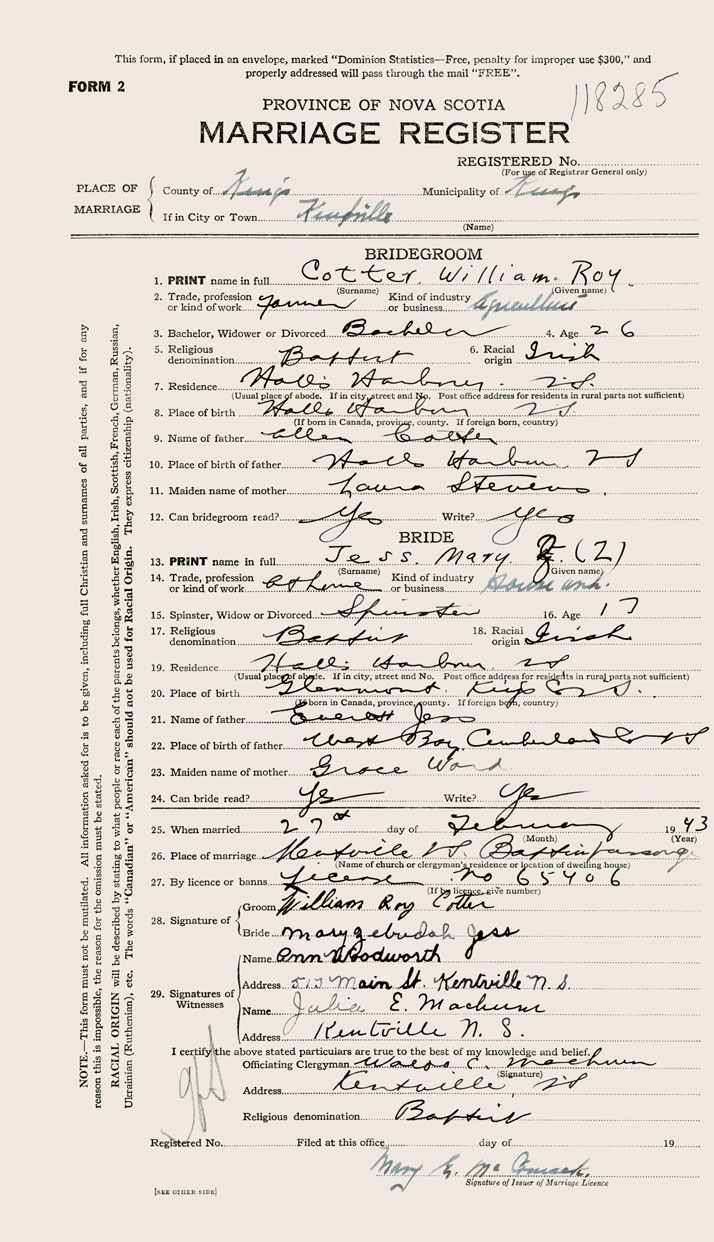 This form, if placed in an envelope, marked "Dominion Statistics—Free, penalty for improper use $300," and
properly addressed will pass through the mail "FREE".
FORM 2
118285
PROVINCE OF NOVA SCOTIA
MARRIAGE REGISTER
REGISTERED No.
(For use of Registrar General only)
PLACE OF MARRIAGE
County of Kings Municipality of Kings
If in City or Town Kentville
(Name)
BRIDEGROOM
1. PRINT name in full Cotter William Roy
(Surname) (Given name)
2. Trade, profession or kind of work Farmer Kind of industry or business Agriculture
3. Bachelor, Widower or Divorced Bachelor 4. Age 26
5. Religious denomination Baptist 6. Racial origin Irish
7. Residence Halls Harbour N.S.
(Usual place of abode. If in city, street and No. Post office address for residents in rural parts not sufficient)
8. Place of birth Halls Harbour N S
(If born in Canada, province, county. If foreign born, country)
9. Name of father Allen Cotter
10. Place of birth of father Halls Harbour N S
11. Maiden name of mother Laura Stevens
12. Can bridegroom read? Yes Write? Yes
BRIDE
13. PRINT name in full Jess. Mary. Z. (Z)
(Surname) (Given name)
14. Trade, profession or kind of work At home Kind of industry or business House wk.
15. Spinster, Widow or Divorced Spinster 16. Age 17
17. Religious denomination Baptist 18. Racial origin Irish
19. Residence Halls Harbour N S
(Usual place of abode. If in city, street and No. Post office address for residents in rural parts not sufficient)
20. Place of birth Glenmont, Kings Co N S.
(If born in Canada, province, county. If foreign born, country)
21. Name of father Everett Jess
22. Place of birth of father West Bay, Cumberland Co N S
23. Maiden name of mother Grace Ward
24. Can bride read? Yes Write? Yes
25. When married 27th day of February 1943
(Month) (Year)
26. Place of marriage Kentville N.S. Baptist Parsonage
(Name of church or clergyman's residence or location of dwelling house)
27. By licence or banns License No 65406
(If by licence, give number)
28. Signature of
Groom William Roy Cotter
Bride Mary Zebudah Jess
29. Signatures of Witnesses
Name Ann Woodworth
Address 513 Main St. Kentville N. S.
Name Julia E. Machum
Address Kentville N. S.
I certify the above stated particulars are true to the best of my knowledge and belief.
Officiating Clergyman Waldo C. Machum
(Signature)
Address Kentville, N S
Religious denomination Baptist
Registered No. Filed at this office day of 19
Mary E. McCormack
Signature of Issuer of Marriage Licence
[SEE OTHER SIDE]
NOTE.—This form must not be mutilated. All information asked for is to be given, including full Christian and surnames of all parties, and if for any
reason this is impossible, the reason for the omission must be stated.
RACIAL ORIGIN will be described by stating to what people or race each of the parents belongs, whether English, Irish, Scottish, French, German, Russian,
Ukrainian (Ruthenian), etc. The words "Canadian" or "American" should not be used for Racial Origin. They express citizenship (nationality).